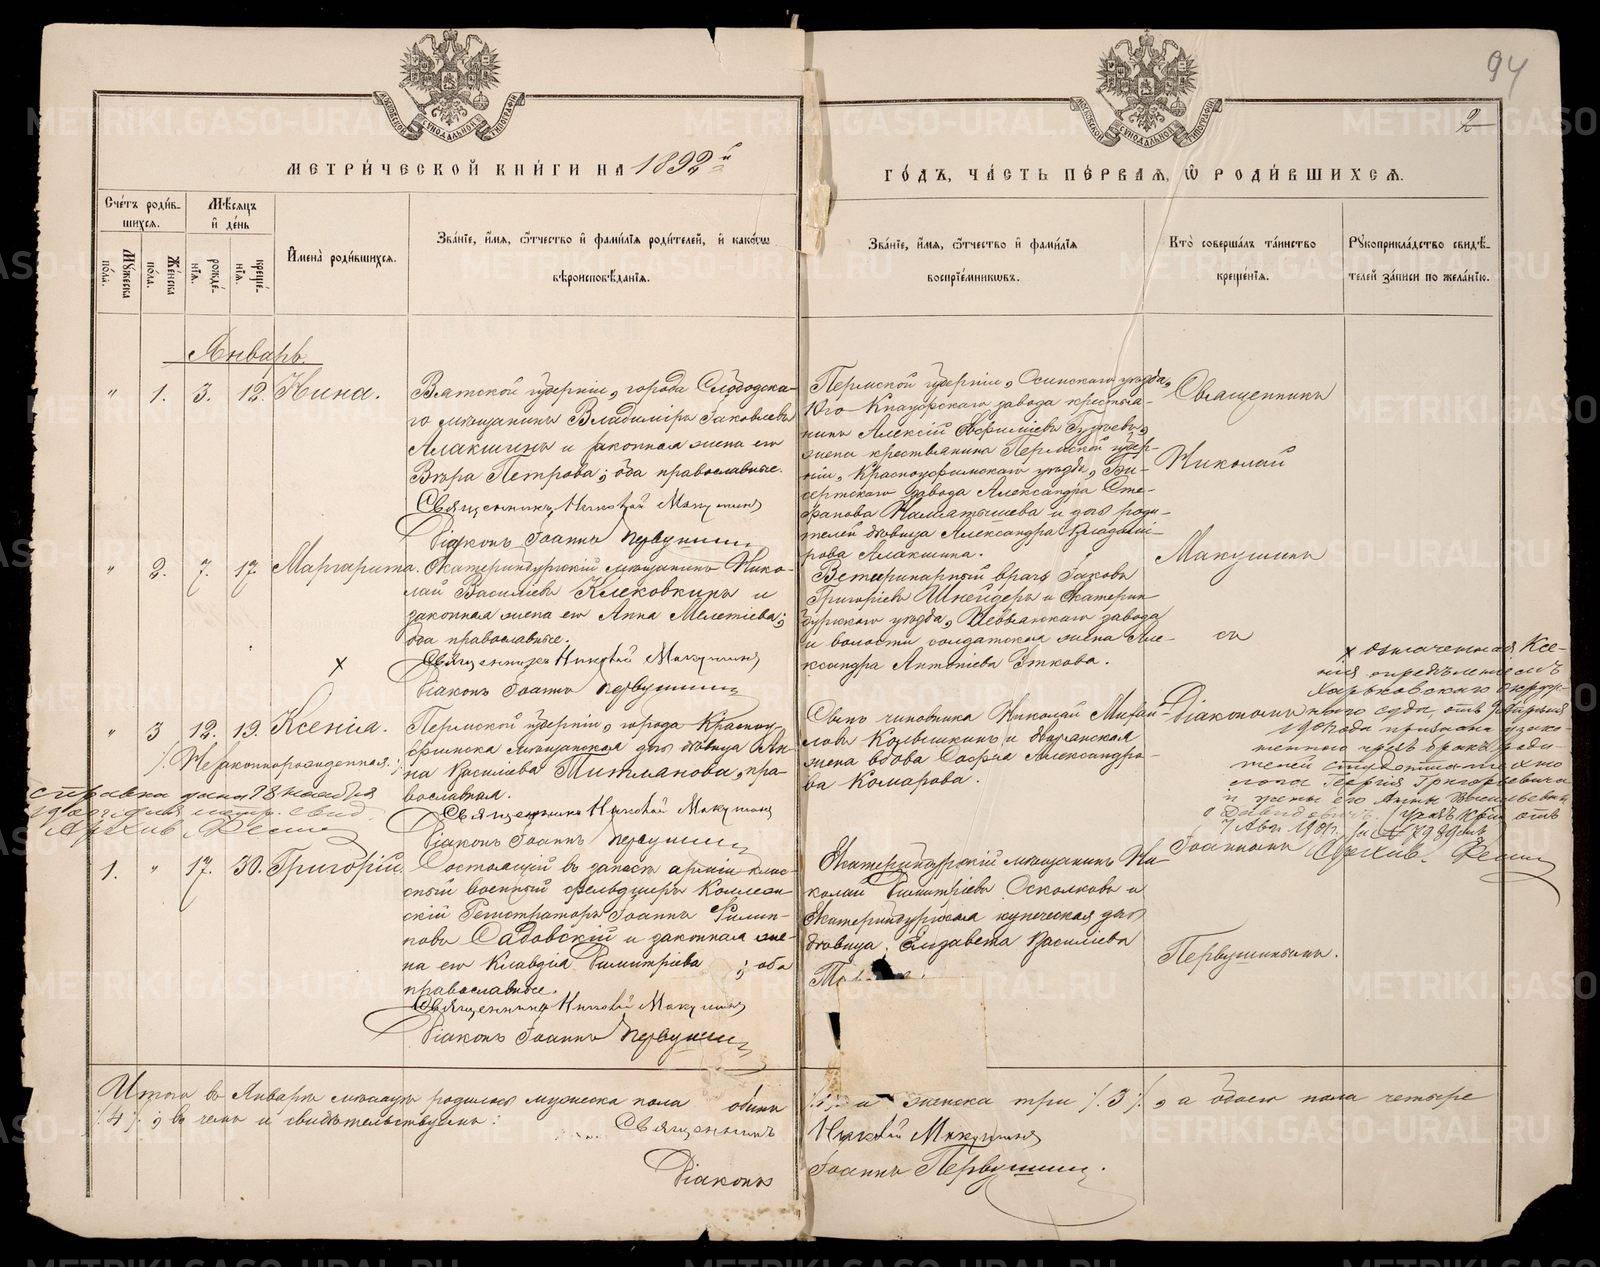 94
2
МОСКОВСКОЙ СѴНОДАЛЬНОЙ ТИПОГРАФІИ
МОСКОВСКОЙ СѴНОДАЛЬНОЙ ТИПОГРАФІИ
МЕТРИ́ЧЕСКОЙ КНИ́ГИ НА 1892й
ГО́ДЪ, ЧА́СТЬ ПЕ́РВАЯ, Ѡ РОДИ́ВШИХСЯ.
Сче́тъ роди́в-
шихся.
Мѣ́сяцъ
и҆ де́нь
Му́жеска пола̀.
Же́нска по́ла.
рожде́-нїя.
креще́-нїя.
И҆мена̀ роди́вшихся.
Зва́нїе, и҆́мя, ѻ҆́тчество и҆ фами́лїя роди́телей, и҆ како́гѡ
вѣроисповѣ́данїя.
Зва́нїе, и҆́мя, ѻ҆́тчество и҆ фами́лїя
воспрїе́мникѡвъ.
Кто̀ соверша́лъ та́инство
креще́нїя.
Рꙋкоприкла́дство свидѣ́-
телей за́писи по жела́нїю.
Январь.
" 1. 3. 12. Нина.
Вятской губерніи, города Слободска-
го мѣщанинъ Владиміръ Іаковлевъ
Алакшинъ и законная жена его
Вѣра Петрова; оба православные.
Священникъ Николай Макушинъ
Діаконъ Іоаннъ Первушинъ
Пермской губерніи, Осинскаго уѣзда,
Юго-Кнауфскаго завода крестья-
нинъ Алексій
жена крестьянина Пермской губер-
ніи, Красноуфимскаго уѣзда, Би-
сертскаго завода Александра Сте-
фанова и дочь роди-
телей дѣвица Александра Владимі-
рова Алакшина.
Священникъ
Николай
Макушинъ
съ
Діакономъ
Іоанномъ
Первушинымъ.
" 2. 7. 17. Маргарита.
Екатеринбургскій мѣщанинъ Нико-
лай Василіевъ Клековкинъ и
законная жена его Анна Мелетіева;
оба православные.
Священникъ Николай Макушинъ
Діаконъ Іоаннъ Первушинъ
Ветеринарный врачъ Іаковъ
Григоріевъ Шнейдеръ и Екатерин-
бургскаго уѣзда, Невьянскаго завода
и волости солдатская жена Але-
ксандра Антоніева Уткова.
х
" 3 12. 19. Ксенія.
Незаконнорожденная.
Пермской губерніи, города Красноу-
фимска мѣщанская дочь дѣвица Ан-
на Василіева Титланова, пра-
вославная.
Священникъ Николай Макушинъ
Діаконъ Іоаннъ Первушинъ
Сынъ чиновника Николай Михаи-
ловъ и дворянская
жена вдова Софія Александро-
ва Комарова.
х означенная Ксе-
нія опредѣленіемъ
Харьковскаго окруж-
наго суда, отъ
года признана узако-
ненною чрезъ бракъ роди-
телей студента техно-
лога Георгія Григорьевича
и жены его Анны Васильевны
Давидовичъ. (указъ Конс. отъ
7 Авг. за №
Архив.
справка дана 18 ноября
Архив
1. " 17. 30. Григорій.
Состоящій въ запасѣ арміи клас-
сный военный фельдшеръ Коллеж-
скій Регистраторъ Іоаннъ Филип-
повъ Садовскій и законная же-
на его Клавдія Димитріева; оба
православные.
Священникъ Николай Макушинъ
Діаконъ Іоаннъ Первушинъ
Екатеринбургскій мѣщанинъ Ни-
колай Димитріевъ Осколковъ и
Екатеринбургская купеческая дочь
дѣвица Елизавета Василіева
Итого въ Январѣ мѣсяцѣ родилось мужеска пола одинъ
/.1./, а женска три /.3./, а обоего пола четыре
/.4./; въ чемъ и свидѣтельствуемъ:
Священникъ Николай Макушинъ
Діаконъ Іоаннъ Первушинъ.
METRIKI.GASO-URAL.RU